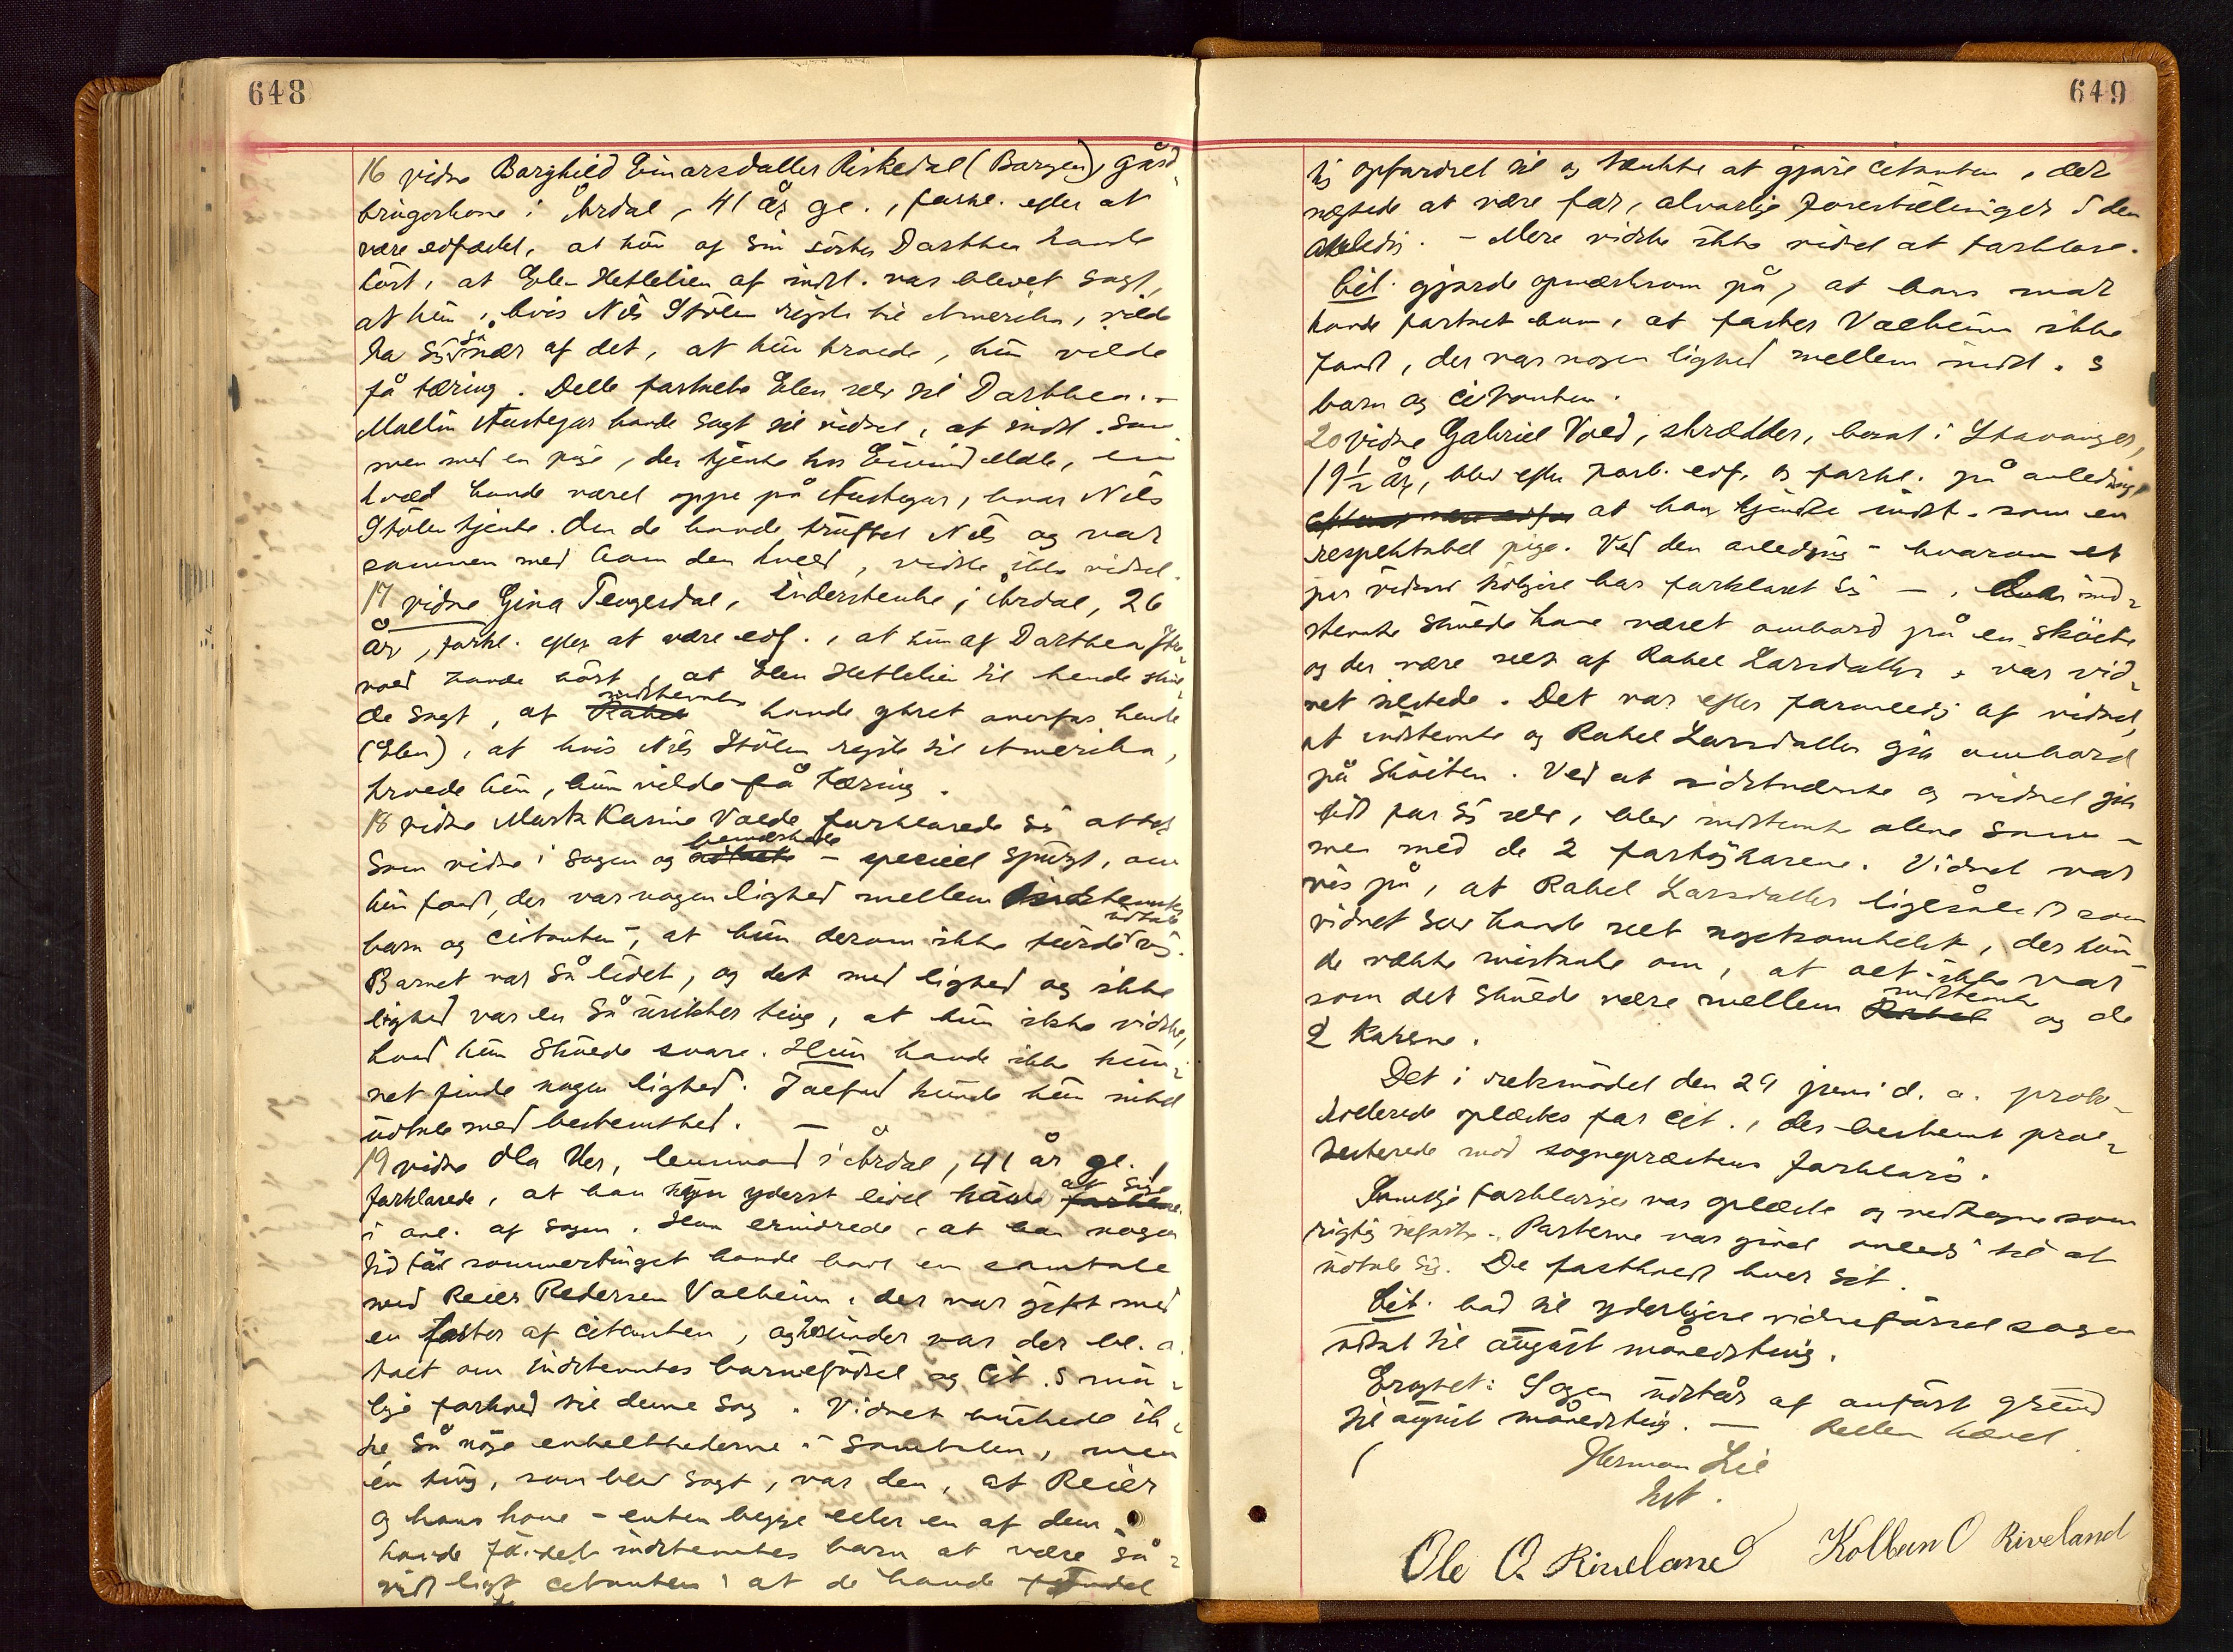 648
16 vidne Borghild Einarsdatter Riskedal (Bargen), gård-
brugerkone i Årdal, 41 år gl., forkl. efter at
være edfæstet, at hun af sin søster Dorthea havde
hørt, at Elen Hetlelien af indst. var blevet sagt,
at hun, hvis Nils Stölen rejste til Amerika, vilde
ta sig så nær af det, at hun troede, hun vilde
få tæring. Dette fortalte Elen selv til Dorthea. -
Mallin Austegar havde sagt til vidnet, at indst. sam
men med en pige, der tjente hos Eivind Mæle, en
kvæld havde været oppe på Austegar, hvor Nils
Stölen tjente. Om de havde truffet Nils og var
sammen med ham den kvæld, vidste ikke vidnet.
17 vidne Gina Tengesdal, inderstenke i Årdal, 26
år, forkl. efter at være edf., at hun af Dorthea
vold havde hørt, at Elen Hetlelien til hende skul-
de sagt, at Rahel indstevnte havde ytret overfor hende
(Elen), at hvis Nils Stölen rejste til Amerika,
troede hun, hun vilde få tæring.
18 vidne Marta Karine Valde forklarede sig atter
som vidne i sagen og udtalte bemærkede - speciel spurgt, om
hun fandt, der var nogen lighed mellem indstevntes
barn og citanten -, at hun derom ikke turde udtale sig.
Barnet var så lidet, og det med lighed og ikke
lighed var en så usikker ting, at hun ikke vidste,
hvad hun skulde svare. Hun havde ikke kun-
net finde nogen lighed. Ialfald kunde hun intet
udtale med bestemthed. -
19 vidne Ola Ver, lensmand i Årdal, 41 år gl.,
forklarede, at han kun yderst lidet havde forklare at sige
i anl. af sagen. Han erindrede, at han nogen
tid før sommertinget havde havt en samtale
med Reier Pedersen Valheim, der var gift med
en faster af citanten, og herunder var der bl. a.
talt om indstevntes barnefødsel og Cit.s mu-
lige forhold til denne sag. Vidnet huskede ik-
ke så nøje enkelthederne i samtalen, men
én ting, som blev sagt, var den, at Reier
og hans kone - enten begge eller en af dem -
havde fundet indstevntes barn at være så-
vidt ligt citanten, at de havde fundet
649
sig opfordret til og tænkte at gjøre citanten, der
nægtede at være far, alvorlige forestillinger i den
anledn. - Mere vidste ikke vidnet at forklare.
Cit. gjorde opmærksom på, at hans mor
havde fortalt ham, at faster Valheim ikke
fandt, der var nogen lighed mellem indst.s
barn og citanten.
20 vidne Gabriel Vold, skrædder, bosat i Stavanger,
19½ år, blev efter forb. edf. og forkl. på anledning,
efter at være edfæ at han kjendte indst. som en
respektabel pige. Ved den anledning - hvorom et
par vidner tidligere har forklaret sig -, da ind-
stevnte skulde have været ombord på en skøite
og der være seet af Rahel Larsdatter, var vid-
net tilstede. Det var efter formeldg af vidnet,
at indstevnte og Rahel Larsdatter gik ombord
på skøiten. Ved at sidstnævnte og vidnet gik
lidt for sig selv, blev indstevnte alene sam-
men med de 2 fartøjkarene. Vidnet var
vis på, at Rahel Larsdatter ligesålidt som
vidnet selv havde seet nogetsomhelst, der kun-
de vække mistanke om, at alt ikke var
som det skulde være mellem Rahel indstevnte og de
2 karene.
Det i retsmødet den 29 juni d. a. proto-
kollerede oplæstes for cit., der bestemt pro-
testerede mod sogneprestens forklarg.
Samtlige forklaringer var oplæste og vedtagne som
rigtig tilførte. Parterne var givet anledn. til at
udtale sig. De fastholdt hver sit.
Cit. bad til yderligere vidneførsel sagen
udsat til august månedsting.
Eragtet: Sagen udstår af anført grund
til august månedsting. - Retten hævet.
Herman Lie
kst.
Ole O. Riveland Kolbein O Riveland